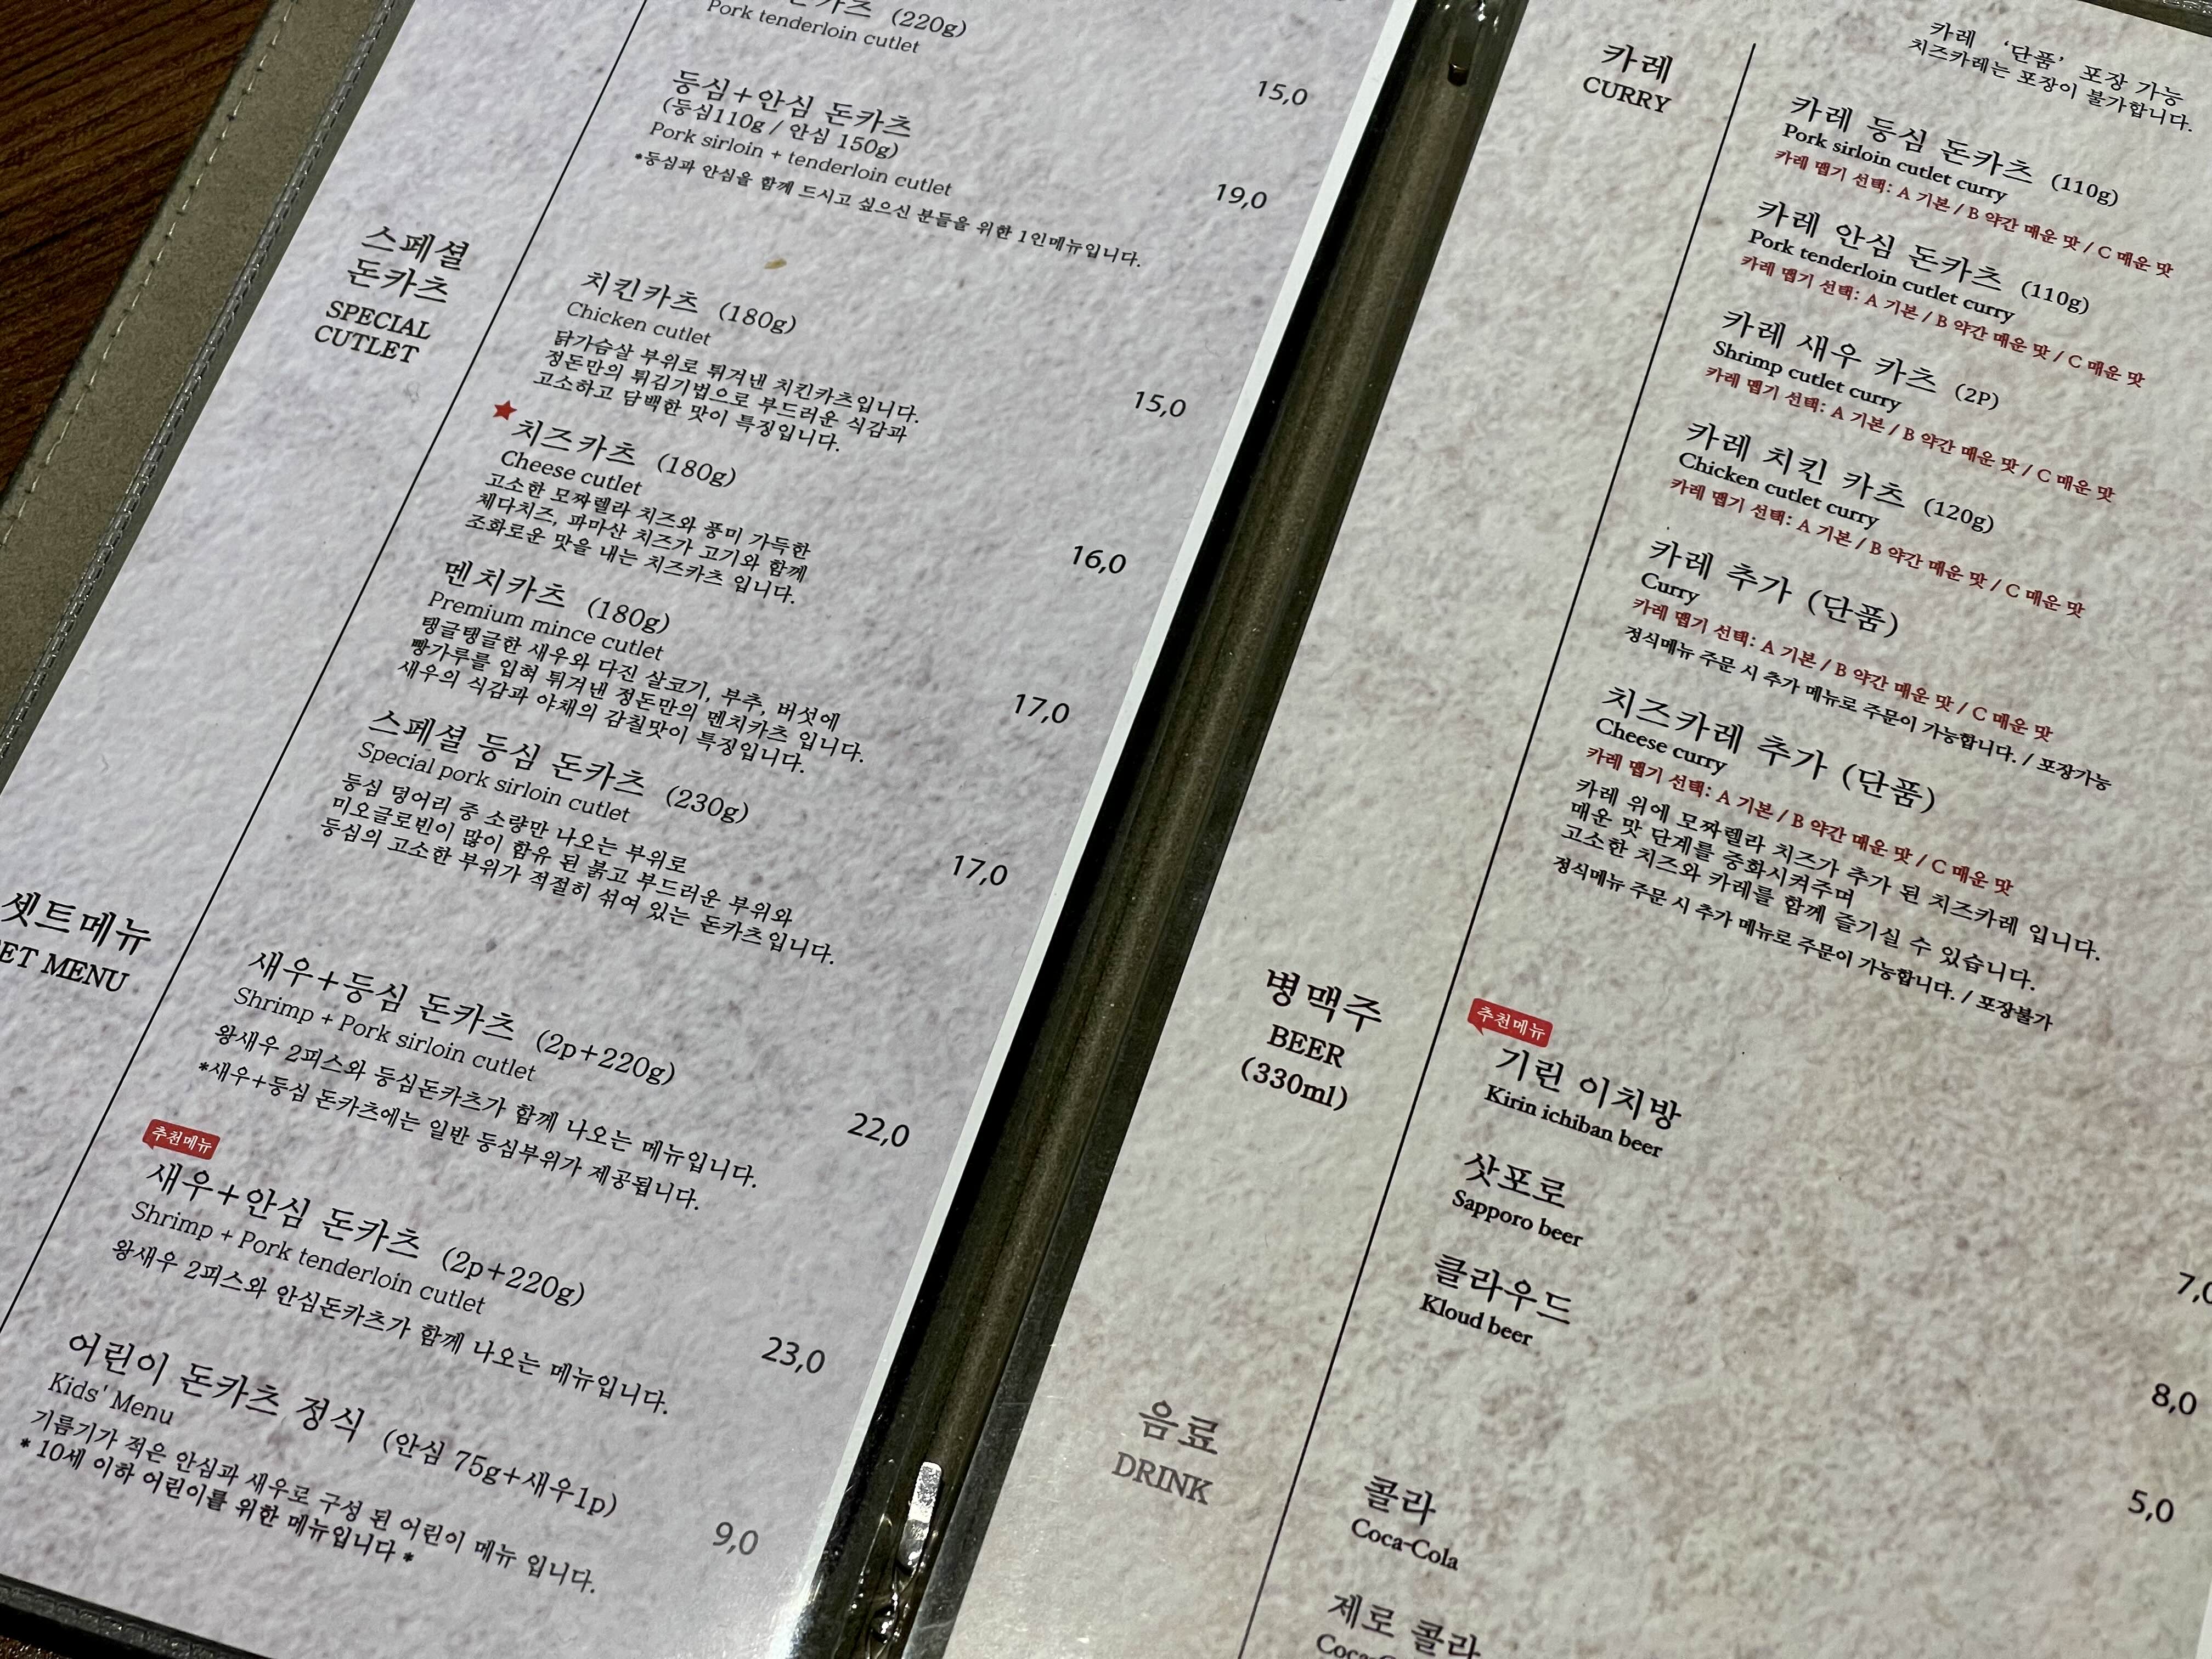 (220g)
Pork tenderloin cutlet
15,0
등심+안심 돈카츠
(등심110g / 안심 150g)
Pork sirloin + tenderloin cutlet
*등심과 안심을 함께 드시고 싶으신 분들을 위한 1인메뉴입니다.
19,0
스페셜
돈카츠
SPECIAL
CUTLET
치킨카츠 (180g)
Chicken cutlet
닭가슴살 부위로 튀겨낸 치킨카츠입니다.
정돈만의 튀김기법으로 부드러운 식감과
고소하고 담백한 맛이 특징입니다.
15,0
치즈카츠 (180g)
Cheese cutlet
고소한 모짜렐라 치즈와 풍미 가득한
체다치즈, 파마산 치즈가 고기와 함께
조화로운 맛을 내는 치즈카츠 입니다.
16,0
멘치카츠 (180g)
Premium mince cutlet
탱글탱글한 새우와 다진 살코기, 부추, 버섯에
빵가루를 입혀 튀겨낸 정돈만의 멘치카츠 입니다.
새우의 식감과 야채의 감칠맛이 특징입니다.
17,0
스페셜 등심 돈카츠 (230g)
Special pork sirloin cutlet
등심 덩어리 중 소량만 나오는 부위로
미오글로빈이 많이 함유 된 붉고 부드러운 부위와
등심의 고소한 부위가 적절히 섞여 있는 돈카츠입니다.
17,0
셋트메뉴
ET MENU
새우+등심 돈카츠 (2p+220g)
Shrimp + Pork sirloin cutlet
왕새우 2피스와 등심돈카츠가 함께 나오는 메뉴입니다.
*새우+등심 돈카츠에는 일반 등심부위가 제공됩니다.
22,0
추천메뉴
새우+안심 돈카츠 (2p+220g)
Shrimp + Pork tenderloin cutlet
왕새우 2피스와 안심돈카츠가 함께 나오는 메뉴입니다.
23,0
어린이 돈카츠 정식 (안심 75g+새우1p)
Kids' Menu
기름기가 적은 안심과 새우로 구성 된 어린이 메뉴 입니다.
* 10세 이하 어린이를 위한 메뉴입니다 *
9,0
카레 '단품' 포장 가능
치즈카레는 포장이 불가합니다.
카레
CURRY
카레 등심 돈카츠 (110g)
Pork sirloin cutlet curry
카레 맵기 선택: A 기본 / B 약간 매운 맛 / C 매운 맛
카레 안심 돈카츠 (110g)
Pork tenderloin cutlet curry
카레 맵기 선택: A 기본 / B 약간 매운 맛 / C 매운 맛
카레 새우 카츠 (2P)
Shrimp cutlet curry
카레 맵기 선택: A 기본 / B 약간 매운 맛 / C 매운 맛
카레 치킨 카츠 (120g)
Chicken cutlet curry
카레 맵기 선택: A 기본 / B 약간 매운 맛 / C 매운 맛
카레 추가 (단품)
Curry
카레 맵기 선택: A 기본 / B 약간 매운 맛 / C 매운 맛
정식메뉴 주문 시 추가 메뉴로 주문이 가능합니다. / 포장가능
치즈카레 추가 (단품)
Cheese curry
카레 맵기 선택: A 기본 / B 약간 매운 맛 / C 매운 맛
카레 위에 모짜렐라 치즈가 추가 된 치즈카레 입니다.
매운 맛 단계를 중화시켜주며
고소한 치즈와 카레를 함께 즐기실 수 있습니다.
정식메뉴 주문 시 추가 메뉴로 주문이 가능합니다. / 포장불가
병맥주
BEER
(330ml)
추천메뉴
기린 이치방
Kirin ichiban beer
삿포로
Sapporo beer
7,0
클라우드
Kloud beer
8,0
5,0
음료
DRINK
콜라
Coca-Cola
제로 콜라